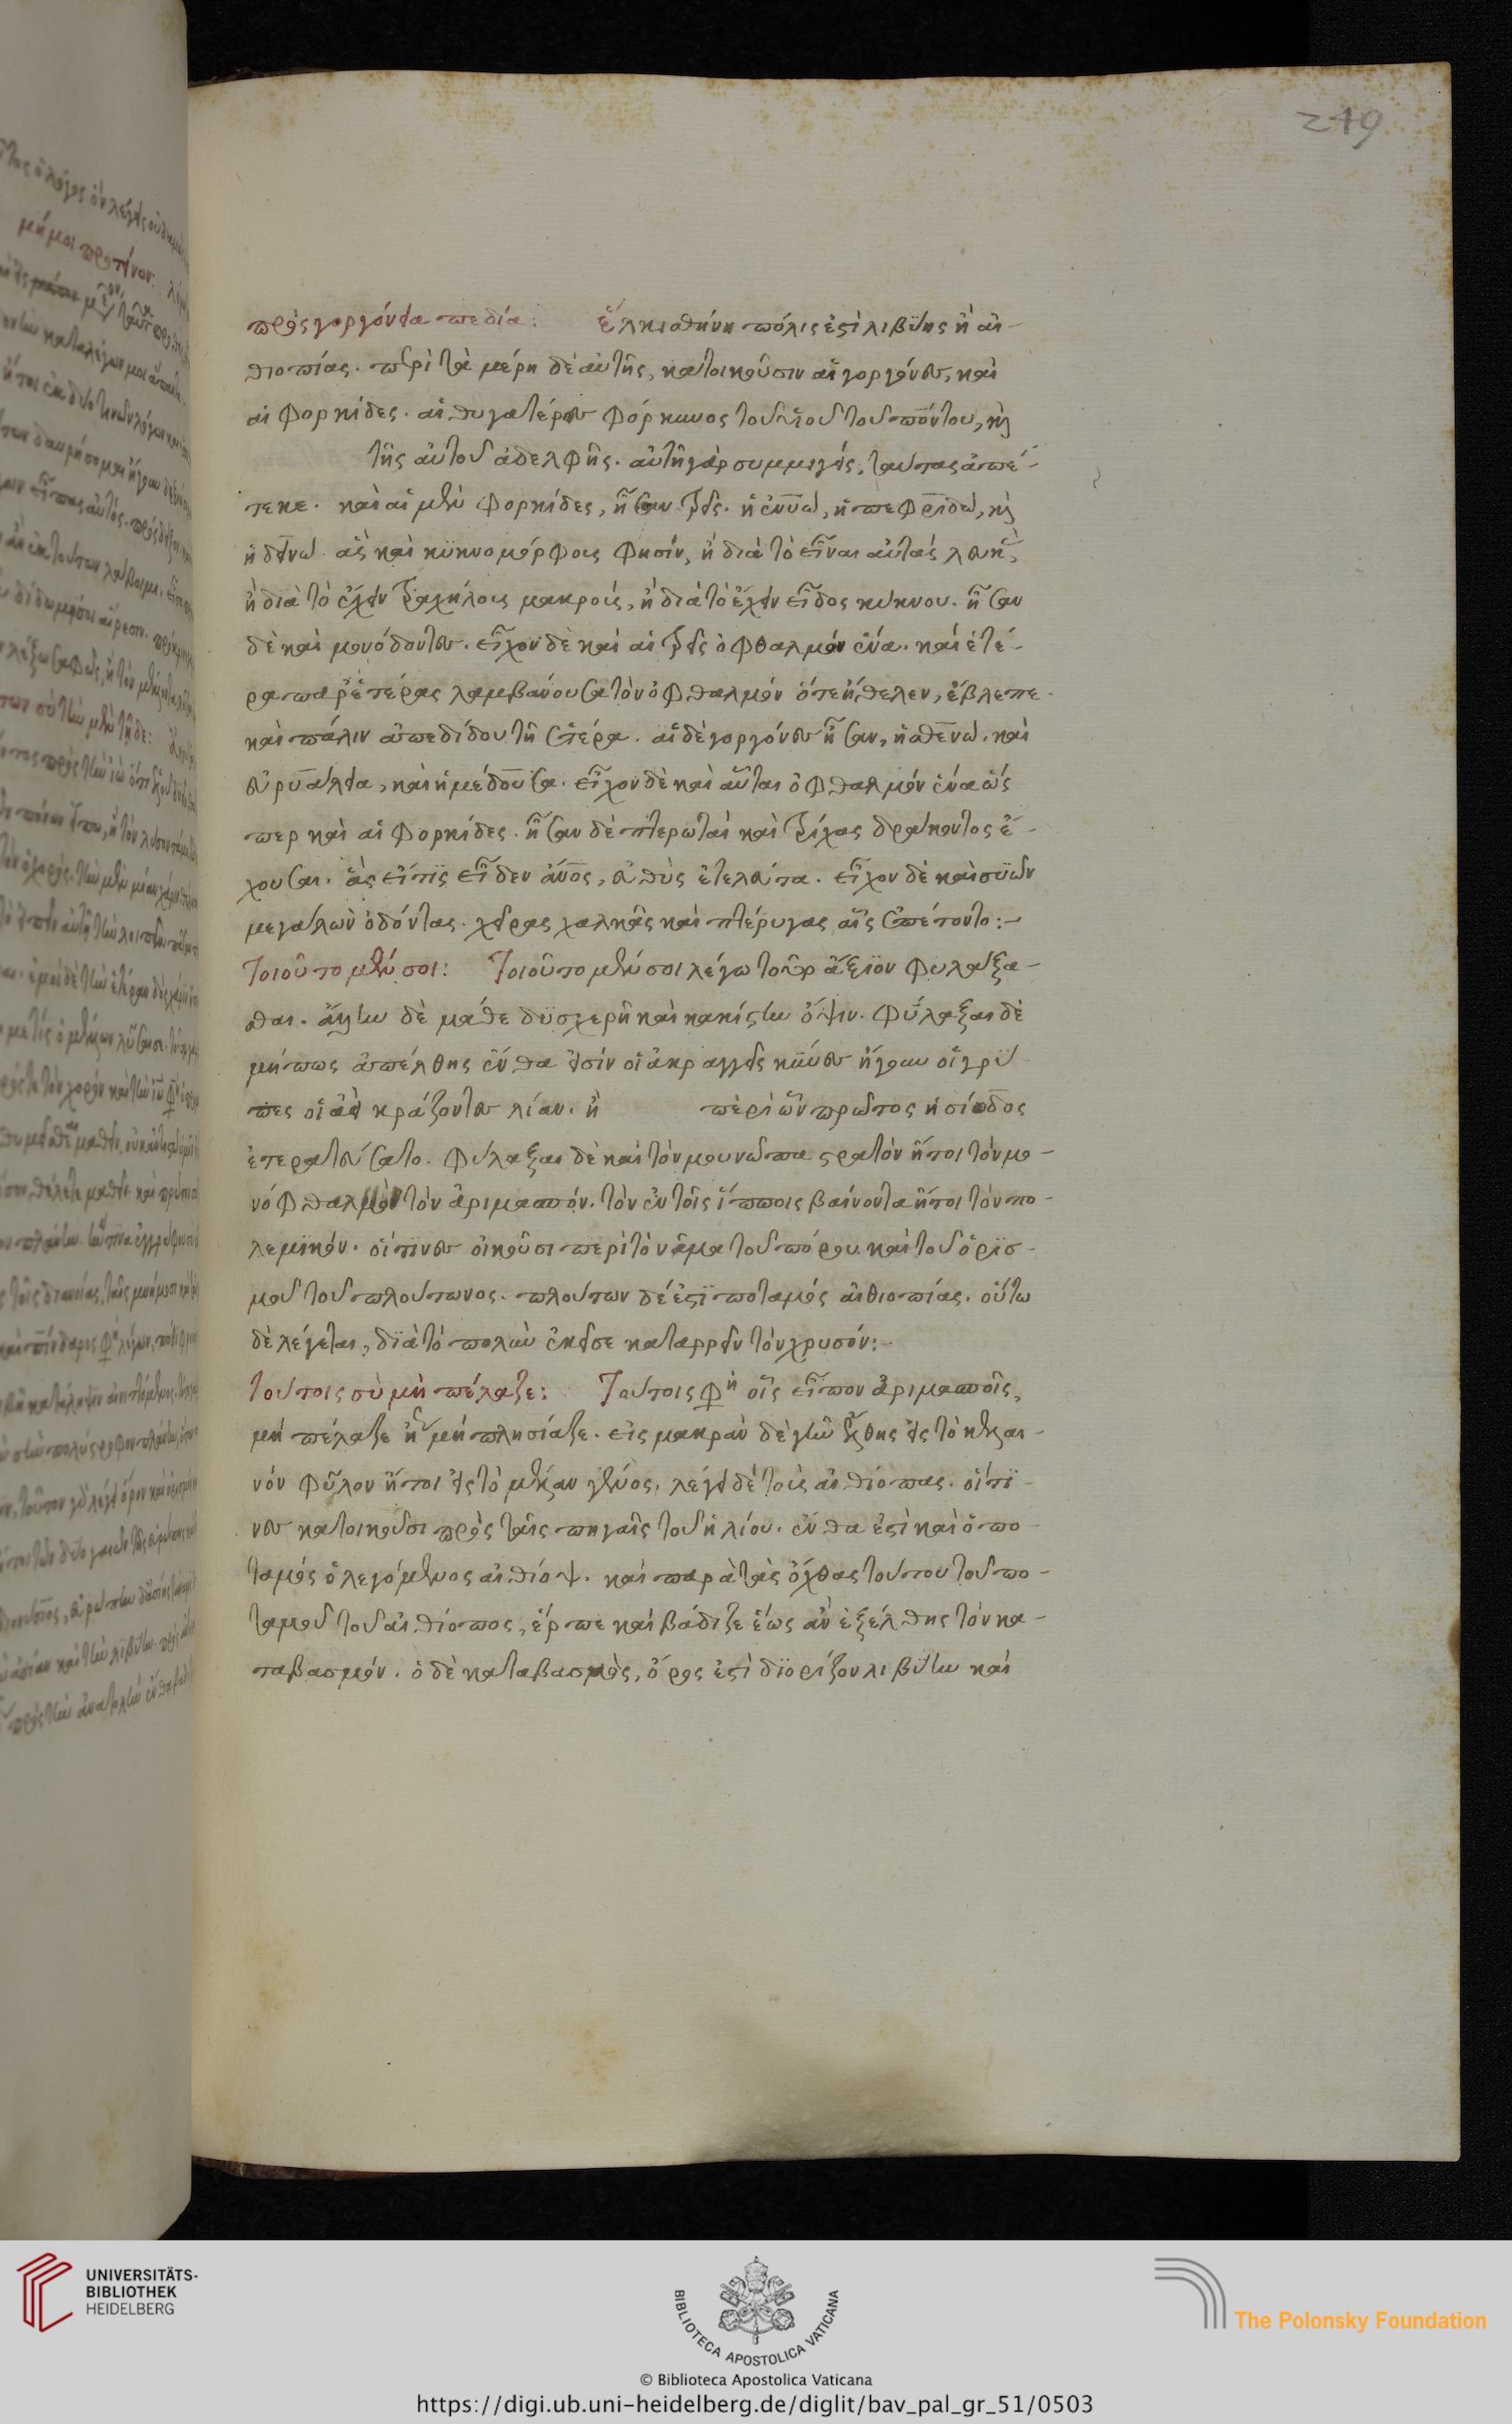 219
πρὸς γοργόνεια πεδία: ἡ λκισθήνη πόλις ἐστὶ λιβύης ἢ αἰ-
θιοπίας. περὶ τὰ μέρη δὲ αὐτῆς, κατοικοῦσιν αἱ γοργόνες, καὶ
αἱ φορκίδες. αἱ θυγατέρες φόρκωνος τοῦ υἱοῦ τοῦ πόντου, καὶ
τῆς αὐτοῦ ἀδελφῆς. αὐτῇ γὰρ συμμιγεὶς, ταύτας ἀπέ-
τεκε. καὶ αἱ μὲν φορκίδες, ἦσαν τρεῖς. ἡ ἐνυὼ, ἡ πεφριδὼ, καὶ
ἡ δεινώ. ἃς καὶ κυκνομόρφους φησίν, ἢ διὰ τὸ εἶναι αὐτὰς λευκὰς,
ἢ διὰ τὸ ἔχειν τραχήλους μακροὺς, ἢ διὰ τὸ ἔχειν εἶδος κύκνου. ἦσαν
δὲ καὶ μονόδοντες. εἶχον δὲ καὶ αἱ τρεῖς ὀφθαλμὸν ἕνα. καὶ ἑτέ-
ρα παρ' ἑτέρας λαμβάνουσα τὸν ὀφθαλμὸν ὅτε ἤθελεν, ἔβλεπε
καὶ πάλιν ἀπεδίδου τῇ ἑτέρᾳ. αἱ δὲ γοργόνες ἦσαν, ἡ σθενώ. καὶ
εὐρυάλεια, καὶ ἡ μέδουσα. εἶχον δὲ καὶ αὗται ὀφθαλμὸν ἕνα ὥς
περ καὶ αἱ φορκίδες. ἦσαν δὲ πτερωταὶ καὶ τρίχας δράκοντος ἔ-
χουσαι. ἃς εἴ τις εἶδεν ἄνος, εὐθὺς ἐτελεύτα. εἶχον δὲ καὶ συῶν
μεγάλων ὀδόντας. χεῖρας χαλκᾶς καὶ πτέρυγας αἷς ἐπέτοντο:-
Τοιοῦτο μέν σοι: Τοιοῦτο μέν σοι λέγω τοῦτο ἄξιον φυλάξα-
σθαι. ἄλλην δὲ μάθε δυσχερῆ καὶ κακίστην ὄψιν. φύλαξαι δὲ
μήπως ἀπέλθῃς ἔνθα εἰσὶν οἱ ἀκραγγεῖς κύνες ἤγουν οἱ γρύ
πες οἱ ἀεὶ κράζοντες λίαν. ἢ περὶ ὧν πρῶτος ἡσίοδος
ἐτερατεύσατο. φύλαξαι δὲ καὶ τὸν μουνῶπα στρατὸν ἤτοι τὸν μο-
νόφθαλμον τὸν ἀριμασπόν. τὸν ἐν τοῖς ἵπποις βαίνοντα ἤτοι τὸν πο-
λεμικόν. οἵτινες οἰκοῦσι περὶ τὸ νᾶμα τοῦ πόρου καὶ τοῦ ὁρισ-
μοῦ τοῦ πλούτωνος. πλούτων δέ ἐστι ποταμὸς αἰθιοπίας. οὕτω
δὲ λέγεται, διὰ τὸ πολὺν ἐκεῖσε καταρρεῖν τὸν χρυσόν:-
τούτοις σὺ μὴ πέλαζε: Τούτοις φη οἷς εἶπον ἀριμασποῖς,
μὴ πέλαζε ἢ μὴ πλησίαζε. εἰς μακρὰν δὲ γῆν ἥξεις εἰς τὸ κελαι-
νὸν φῦλον ἤτοι εἰς τὸ μέλαν γένος. λέγει δὲ τοὺς αἰθίοπας. οἵτι-
νες κατοικοῦσι πρὸς ταῖς πηγαῖς τοῦ ἡλίου. ἔνθα ἐστὶ καὶ ὁ πο-
ταμὸς ὁ λεγόμενος αἰθίοψ. καὶ παρὰ τὰς ὄχθας τούτου τοῦ πο-
ταμοῦ τοῦ αἰθίοπος, ἕρπε καὶ βάδιζε ἕως ἂν ἐξέλθῃς τὸν κα-
ταβασμόν. ὁ δὲ καταβασμὸς, ὄρος ἐστὶ διορίζον λιβύην καὶ
UNIVERSITÄTS-
BIBLIOTHEK
HEIDELBERG
BIBLIOTECA APOSTOLICA VATICANA
The Polonsky Foundation
© Biblioteca Apostolica Vaticana
https://digi.ub.uni-heidelberg.de/diglit/bav_pal_gr_51/0503